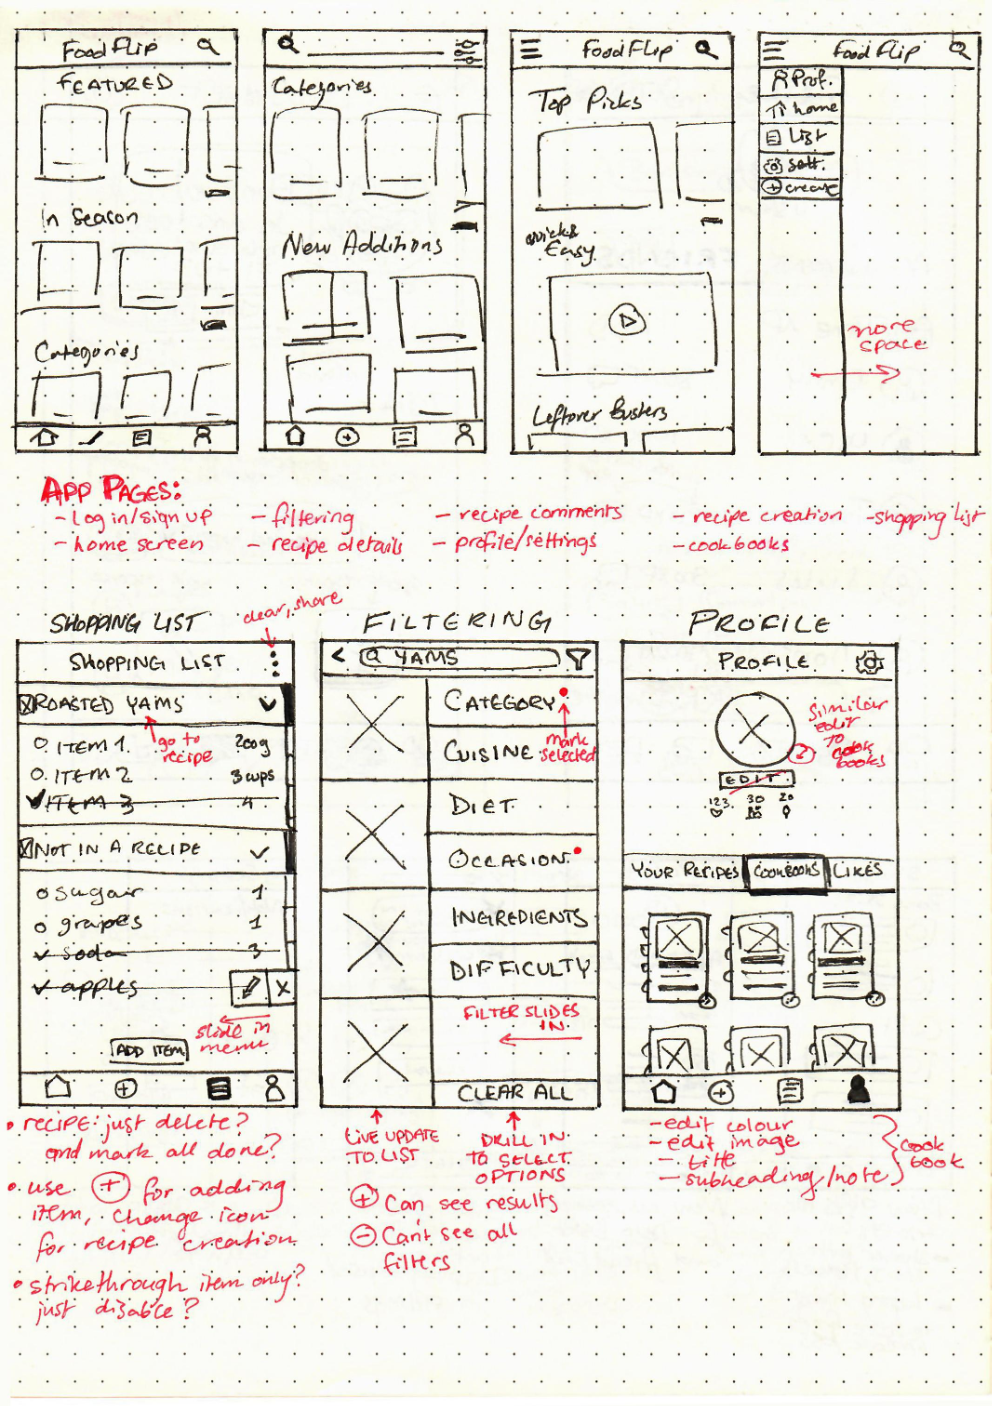 FoodFlip
FEATURED
In Season
Categories
Categories
New Additions
FoodFlip
Top Picks
Quick &
Easy
Leftover Busters
FoodFlip
Prof.
home
List
Sett.
create
more
space
APP PAGES:
- Log in/sign up
- home screen
- filtering
- recipe details
- recipe comments
- profile/settings
- recipe creation
- cookbooks
- shopping list
SHOPPING LIST
clear, share
SHOPPING LIST
ROASTED YAMS
go to
recipe
ITEM 1 200g
ITEM 2 3 cups
ITEM 3 4
NOT IN A RECIPE
sugar 1
grapes 1
soda 3
apples X
slide in
menu
ADD ITEM
• recipe: just delete?
and mark all done?
• use + for adding
item, change icon
for recipe creation
• strikethrough item only?
just disable?
FILTERING
< YAMS
CATEGORY
mark
selected
CUISINE
DIET
OCCASION
INGREDIENTS
DIFFICULTY
FILTER SLIDES
IN
CLEAR ALL
LIVE UPDATE
TO LIST
DRILL IN
TO SELECT
OPTIONS
+ Can see results
- Can't see all
filters
PROFILE
PROFILE
similar
edit
to
cook
books
EDIT
123 30 20
YOUR RECIPES COOKBOOKS LIKES
- edit colour
- edit image
- title
- subheading/note
cook
book